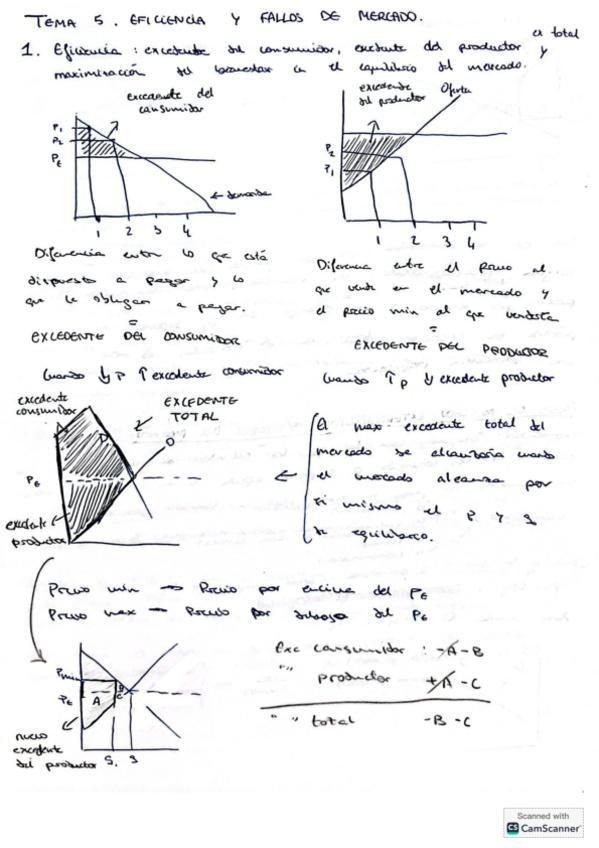 TEMA 5. EFICIENCIA Y FALLOS DE MERCADO.
1. Eficiencia : excedente del consumidor, excedente del productor y
ex total
maximización del bienestar en el equilibrio del mercado.
excedente del
consumidor
P1
P2
PE
← demanda
1 2 3 4
excedente
del productor
Oferta
P2
P1
1 2 3 4
Diferencia entre lo que está
dispuesto a pagar y lo
que le obligan a pagar.
=
EXCEDENTE DEL CONSUMIDOR
Cuando ↓ P ↑ excedente consumidor
Diferencia entre el Precio al
que vende en el mercado y
el precio min al que vendería
=
EXCEDENTE DEL PRODUCTOR
Cuando ↑ p ↓ excedente productor
excedente
consumidor
EXCEDENTE
TOTAL
D
O
PE
excedente
productor
El max excedente total del
mercado se alcanzaría cuando
el mercado alcanza por
si mismo el P y q
de equilibrio.
Precio min → Precio por encima del PE
Precio max → Precio por debajo del PE
Pmin
PE
A
B
C
nuevo
excedente
del productor
Exc consumidor : -A -B
" " productor +A -C
" " total -B -C
Scanned with
CS CamScanner